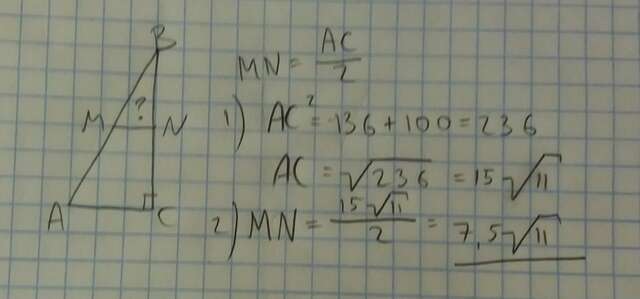 B
MN = AC/2
?
M N
1) AC² = 136 + 100 = 236
AC = √236 = 15√11
A C
2) MN = 15√11/2 = 7,5√11